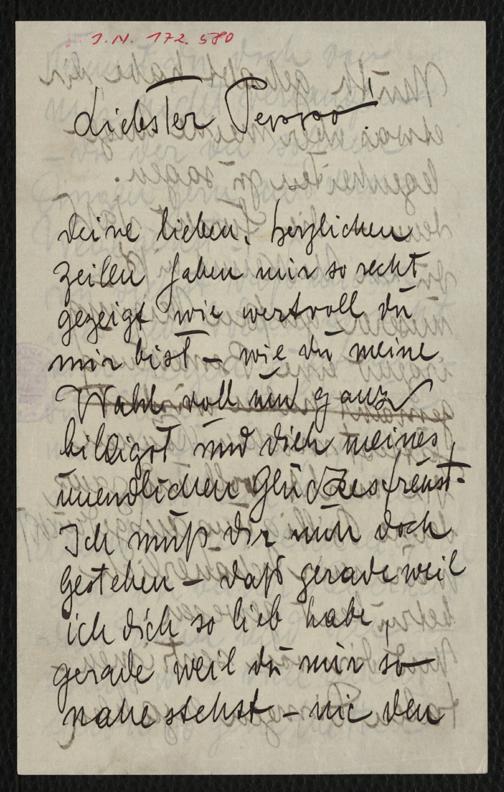 I.N. 172.580
Liebster
Deine lieben, herzlichen
Zeilen haben mir so recht
gezeigt wie wertvoll du
mir bist – wie du meine
Wahl voll und ganz
billigst und dich meines
unendlichen Glückes freust.
Ich muß dir nun doch
gestehen – daß gerade weil
ich dich so lieb habe,
gerade weil du mir so
nahe stehst – nie den